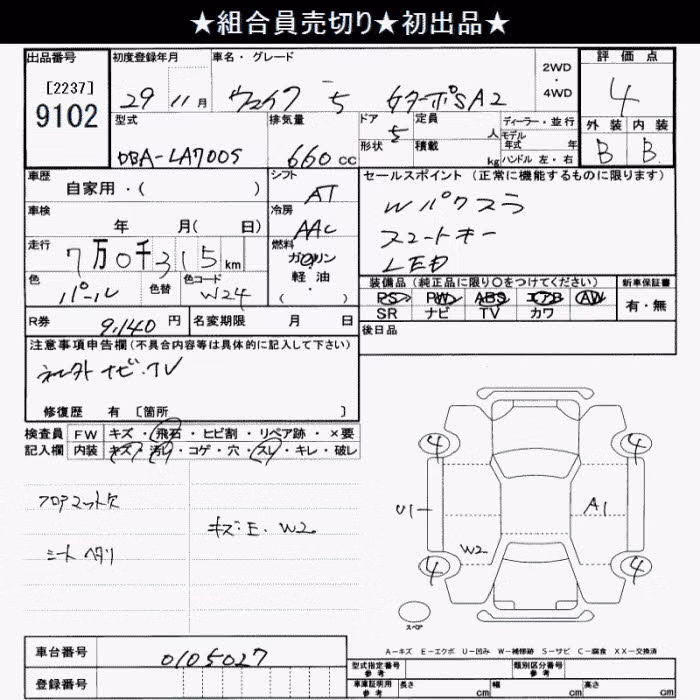 ★組合員売切り★初出品★
出品番号 初度登録年月 車名・グレード 2WD ・ 4WD 評価点
[2237]
9102
29 11月 ウェイク 5 Gターボ SA2 4
型式 排気量 ドア 定員 人 ディーラー・並行
モデル年式 年 外装 内装
DBA-LA700S 660cc 5 形状 積載 kg ハンドル 左・右 B B
車歴 シフト セールスポイント(正常に機能するものに限ります)
自家用・( ) AT Wパワスラ
車検 冷房 スマートキー
年 月( 日) AAC LED
走行 7万0千315km 燃料 ガソリン・軽油・( )
装備品(純正品に限り○をつけてください) 新車保証書
色 パール 色替 色コード W24
PS PW ABS エアB AW 有・無
SR ナビ TV カワ
R券 9,140円 名変期限 月 日 後日品
注意事項申告欄(不具合内容等は具体的に記入して下さい)
社外ナビ.TV
修復歴 有 [箇所 ]
検査員 FW キズ・飛石・ヒビ割・リペア跡・×要
記入欄 内装 キズ・汚レ・コゲ・穴・スレ・キレ・破レ
4 4
フロアマット欠
キズ・E・W2
シートヘタリ
U1 A1
W2
4 4
スペア
A-キズ E-エクボ U-凹み W-補修跡 S-サビ C-腐食 XX-交換済
車台番号 0105027
型式指定番号 参考 類別区分番号 参考
登録番号 車庫証明用 参考 長さ cm 幅 cm 高さ cm